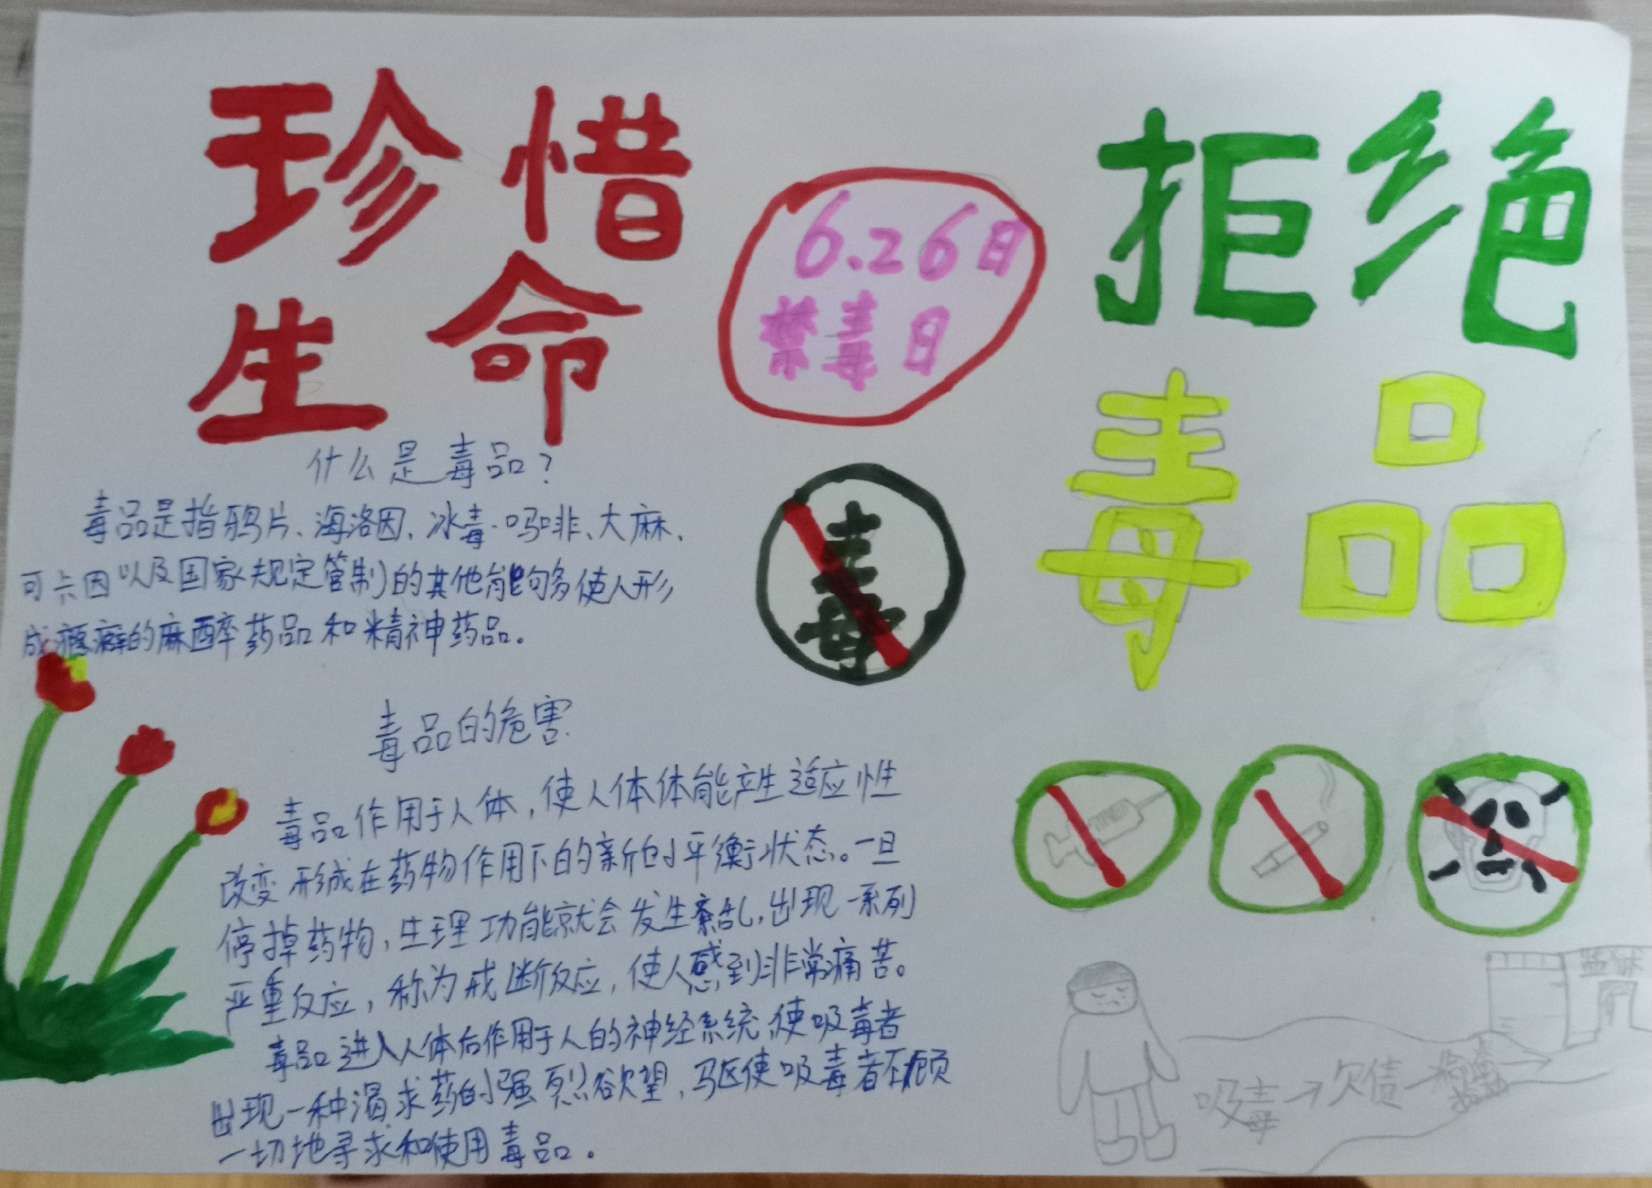 珍惜
生命
6.26日
禁毒日
拒绝
毒品
什么是毒品?
毒品是指鸦片、海洛因、冰毒、吗啡、大麻、
可卡因以及国家规定管制的其他能够多使人形
成瘾癖的麻醉药品和精神药品。
毒
毒品的危害
毒品作用于人体,使人体体能产生适应性
改变形成在药物作用下的新的平衡状态。一旦
停掉药物,生理功能就会发生紊乱,出现一系列
严重反应,称为戒断反应,使人感到非常痛苦。
毒品进入人体后作用于人的神经系统使吸毒者
出现一种渴求药的强烈欲望,驱使吸毒者不顾
一切地寻求和使用毒品。
监狱
吸毒→欠债→